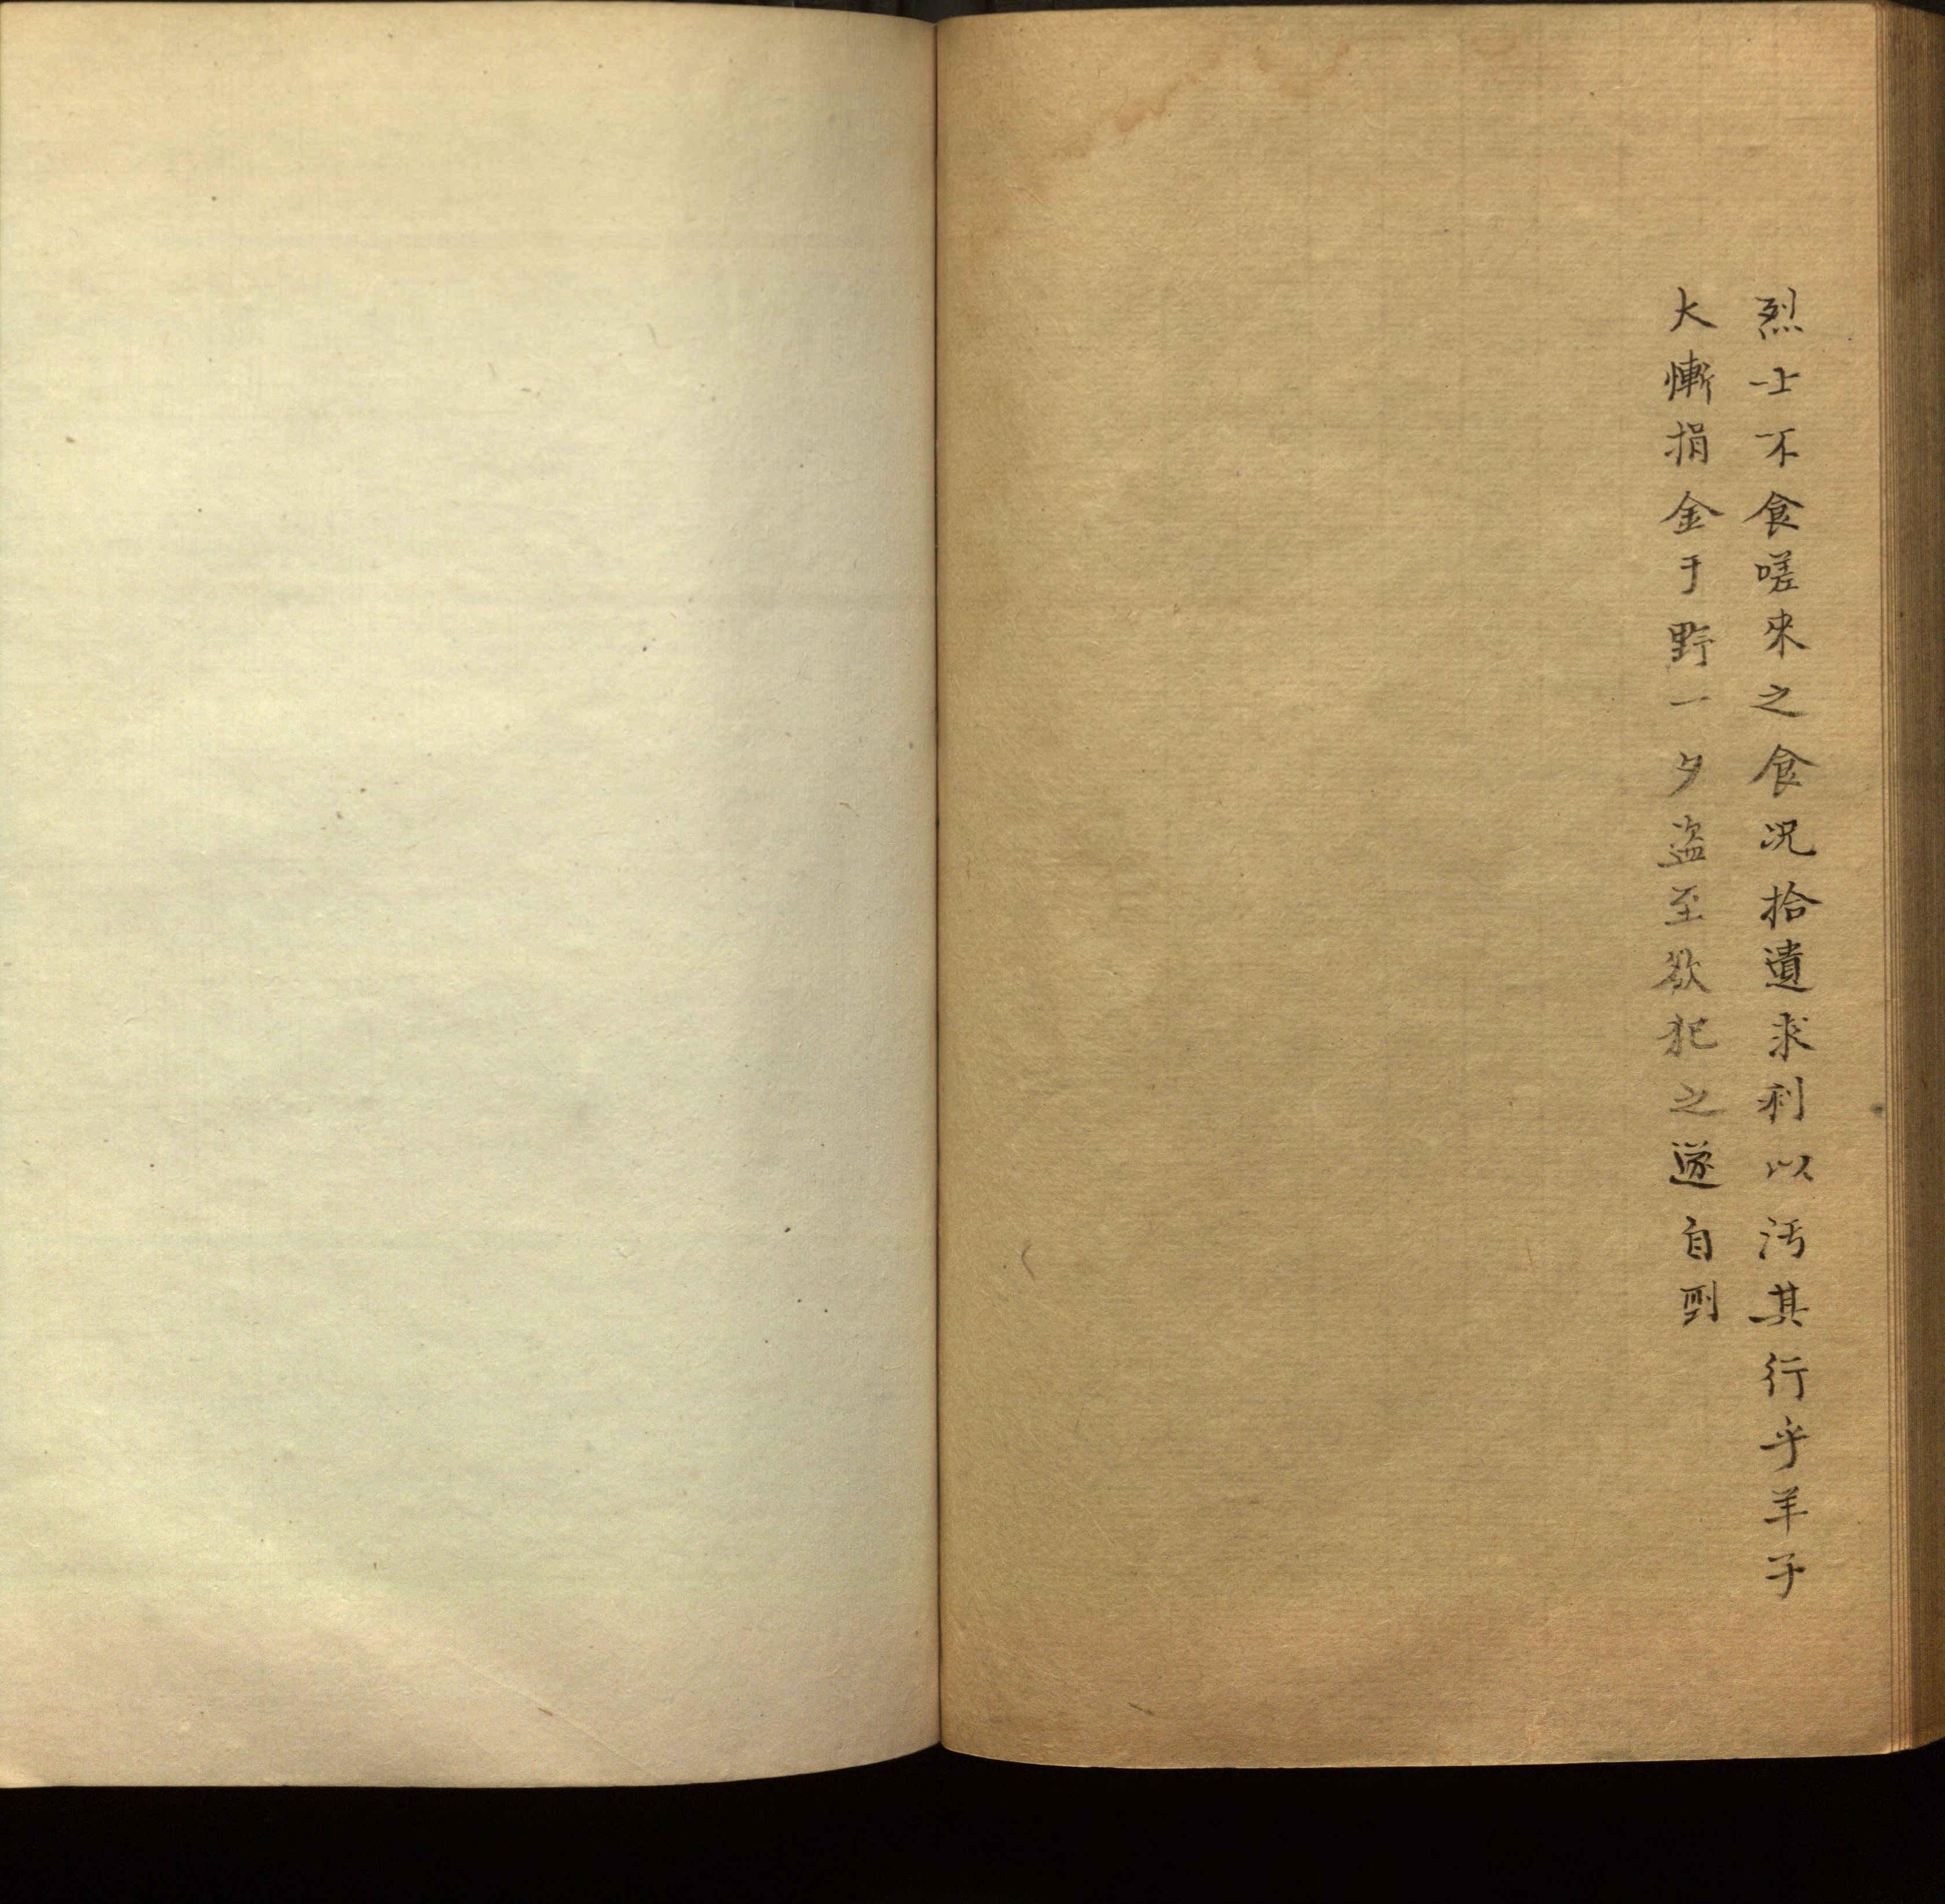 烈士不食嗟來之食况拾遺求利以汚其行乎羊子
大慚捐金于野一夕盗至欲犯之遂自刎